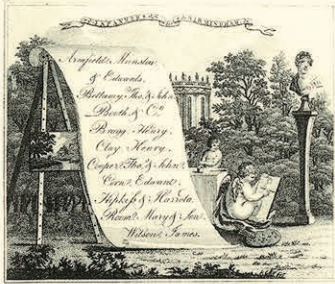 JAPANNERS in BIRMINGHAM.
Armfield, Munslow,
& Edwards.
Bellamy, Tho.s & John
Booth & Co.
Bragg Henry.
Clay Henry.
Cooper Tho.s & John
Corn Edward.
Hipkiss & Harrold.
Room Mary & Son.
Wilson James.